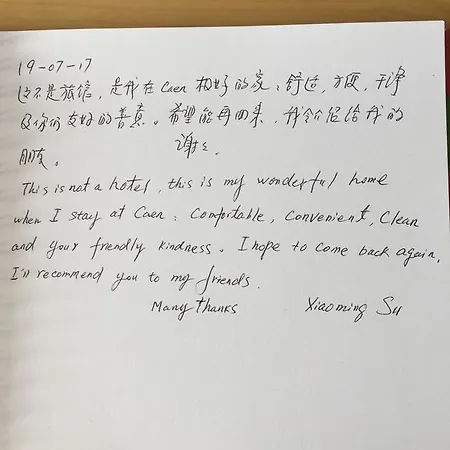 19-07-17
这不是旅馆，是我在Caen相好的家：舒适，方便，干净
及你们友好的善意。希望能再回来，我会介绍给我的
朋友。 谢谢。
This is not a hotel, this is my wonderful home
when I stay at Caen: Comfortable, Convenient, Clean
and your friendly kindness. I hope to come back again,
I'll recommend you to my friends.
Many thanks Xiaoming Su